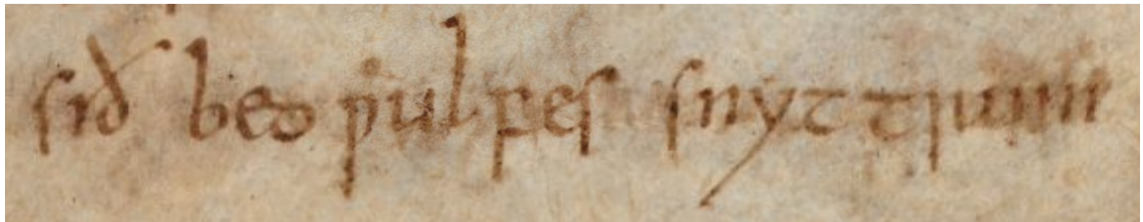 sið beo ƿulfes snyttrum